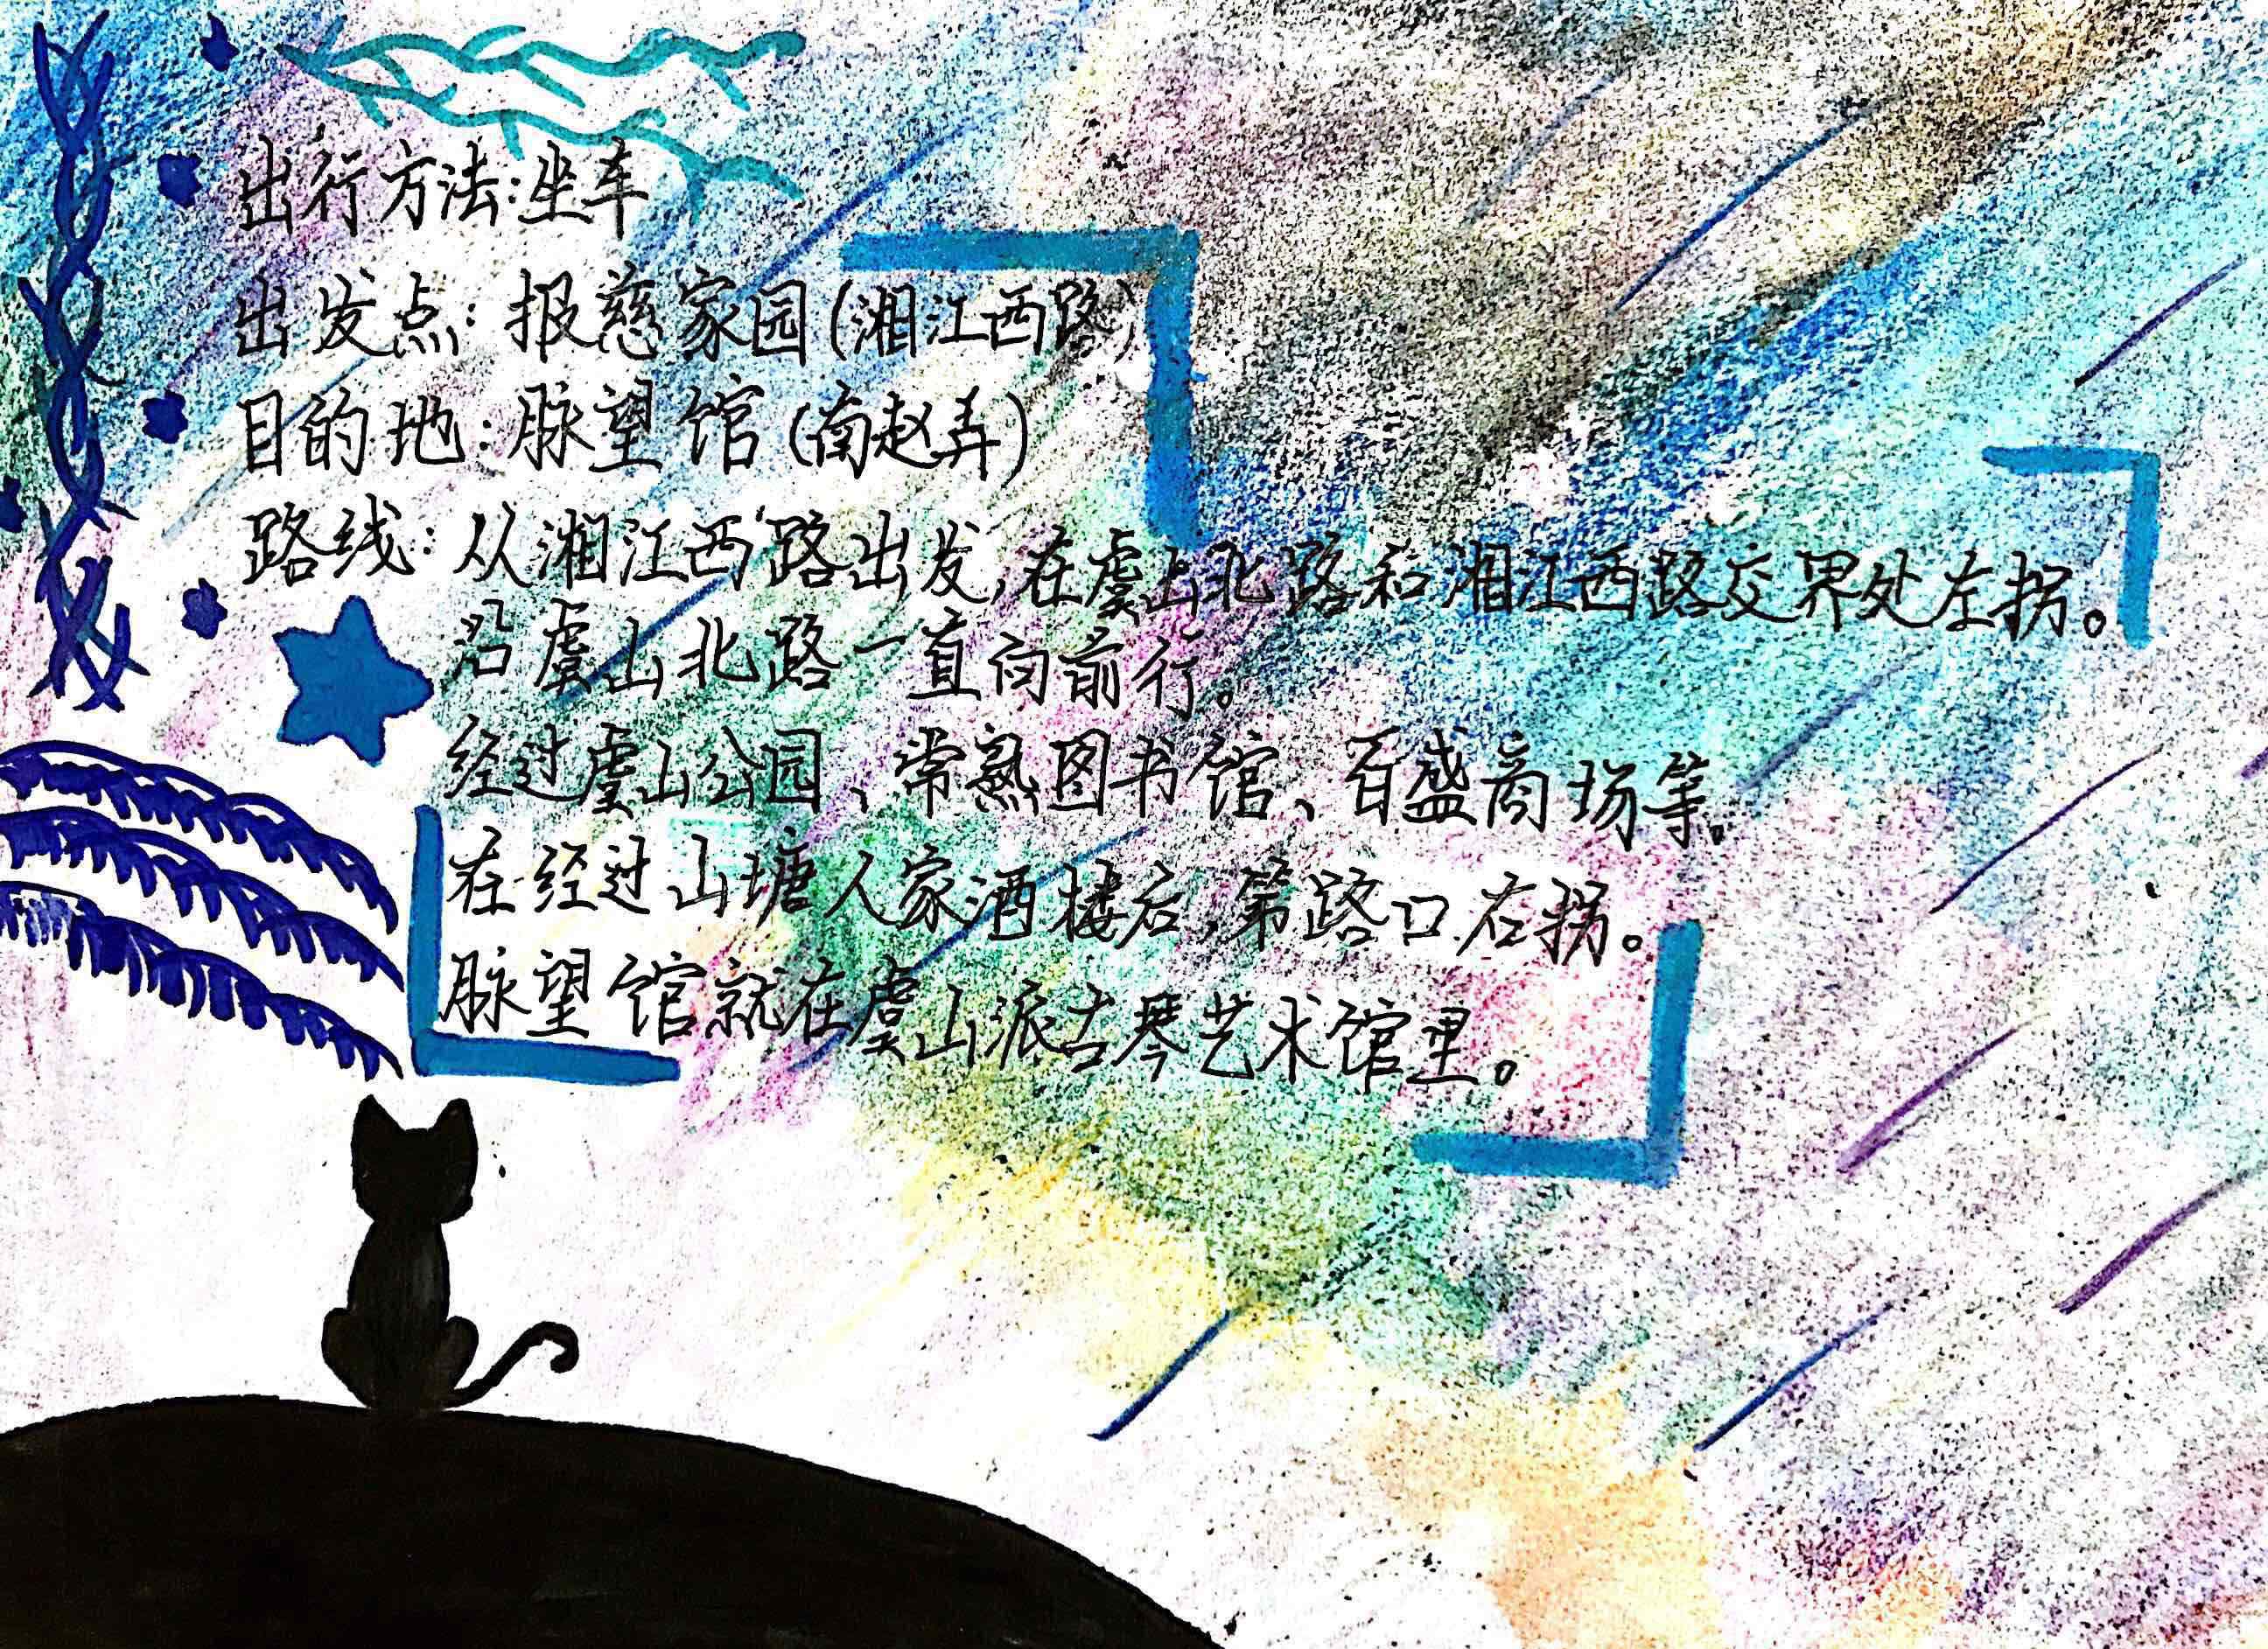 出行方法:坐车
出发点:报慈家园(湘江西路)
目的地:脉望馆(南赵弄)
路线:从湘江西路出发,在虞山北路和湘江西路交界处左拐。
沿虞山北路一直向前行。
经过虞山公园、常熟图书馆、百盛商场等。
在经过山塘人家酒楼后,第路口右拐。
脉望馆就在虞山派古琴艺术馆里。